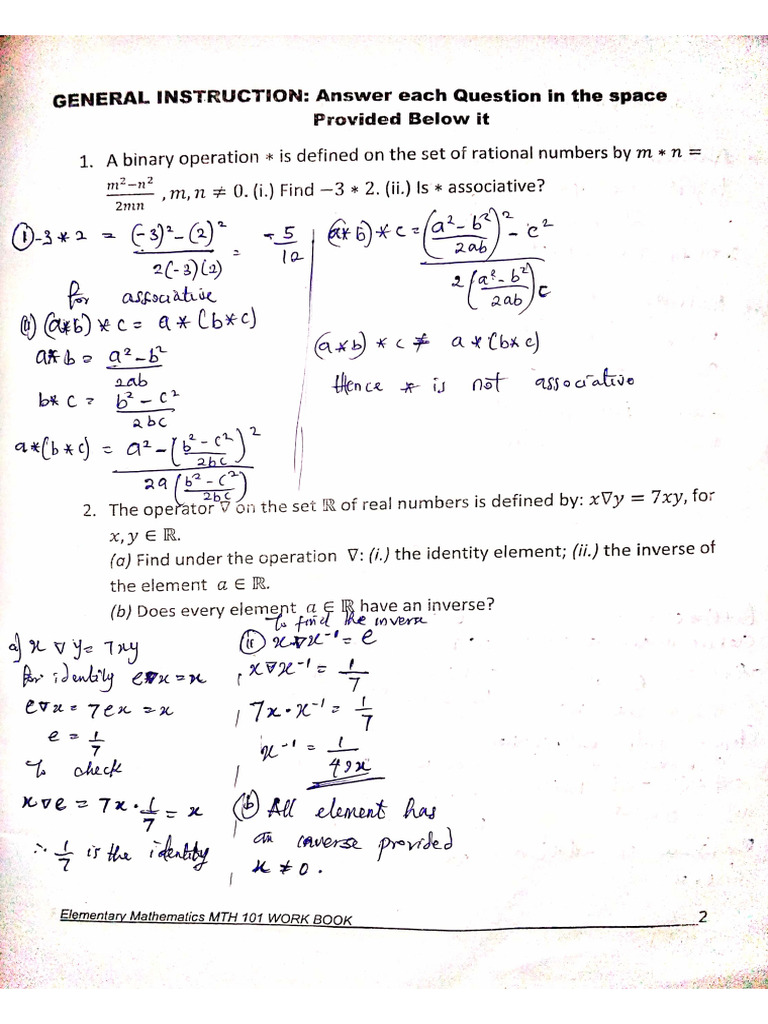 GENERAL INSTRUCTION: Answer each Question in the space
Provided Below it
1. A binary operation ∗ is defined on the set of rational numbers by m ∗ n =
(m²−n²)/(2mn) , m, n ≠ 0. (i.) Find −3 ∗ 2. (ii.) Is ∗ associative?
(i) -3 * 2 = ((-3)² - (2)²)/(2(-3)(2)) = -5/12
for associative
(ii) (a*b) * c = a * (b*c)
a*b = (a² - b²)/(2ab)
b*c = (b² - c²)/(2bc)
a*(b*c) = (a² - ((b² - c²)/(2bc))²)/(2a((b² - c²)/(2bc)))
(a*b) * c = (((a² - b²)/(2ab))² - c²)/(2((a² - b²)/(2ab))c)
(a*b) * c ≠ a*(b*c)
Hence * is not associative
2. The operator ∇ on the set ℝ of real numbers is defined by: x∇y = 7xy, for
x, y ∈ ℝ.
(a) Find under the operation ∇: (i.) the identity element; (ii.) the inverse of
the element a ∈ ℝ.
(b) Does every element a ∈ ℝ have an inverse?
a) x ∇ y = 7xy
for identity e∇x = x
e∇x = 7ex = x
e = 1/7
To check
x∇e = 7x · 1/7 = x
∴ 1/7 is the identity
To find the inverse
(ii) x∇x⁻¹ = e
x∇x⁻¹ = 1/7
7x · x⁻¹ = 1/7
x⁻¹ = 1/49x
(b) All element has
an inverse provided
x ≠ 0.
Elementary Mathematics MTH 101 WORK BOOK 2